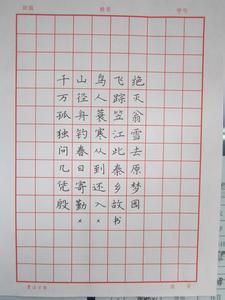 班级 姓名 学号
千山鸟飞绝
万径人踪灭
孤舟蓑笠翁
独钓寒江雪
问春从此去
几日到秦原
凭寄还乡梦
殷勤入故园
××书